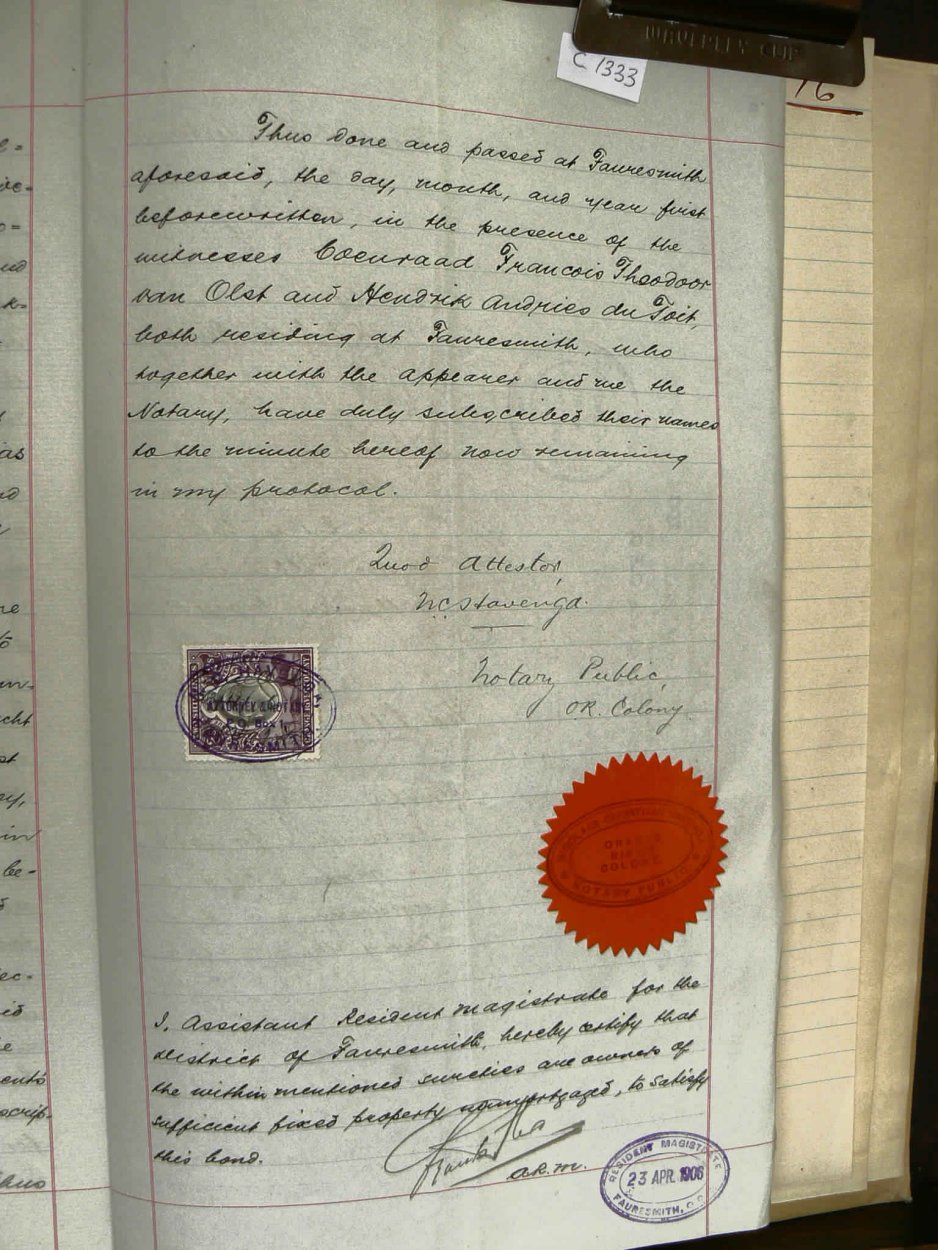 WAVERLEY CLIP
C 1333
76
Thus done and passed at Fauresmith
aforesaid, the day, month, and year first
beforewritten, in the presence of the
witnesses Coenraad Francois Theodoor
van Olst and Hendrik Andries du Toit,
both residing at Fauresmith, who
together with the appearer and me the
Notary, have duly subscribed their names
to the minute hereof now remaining
in my protocol.
Quod Attestor,
N.C. Havenga.
Notary Public,
OR. Colony
ATTORNEY & NOTARY
P.O. Box
FAURESMITH
ORANGE
RIVER
COLONY
NOTARY PUBLIC
I, Assistant Resident Magistrate for the
district of Fauresmith, hereby certify that
the within mentioned sureties are owners of
sufficient fixed property unmortgaged, to satisfy
this bond.
Frank
A.R.M.
RESIDENT MAGISTRATE
23 APR. 1906
FAURESMITH, O.R.C.